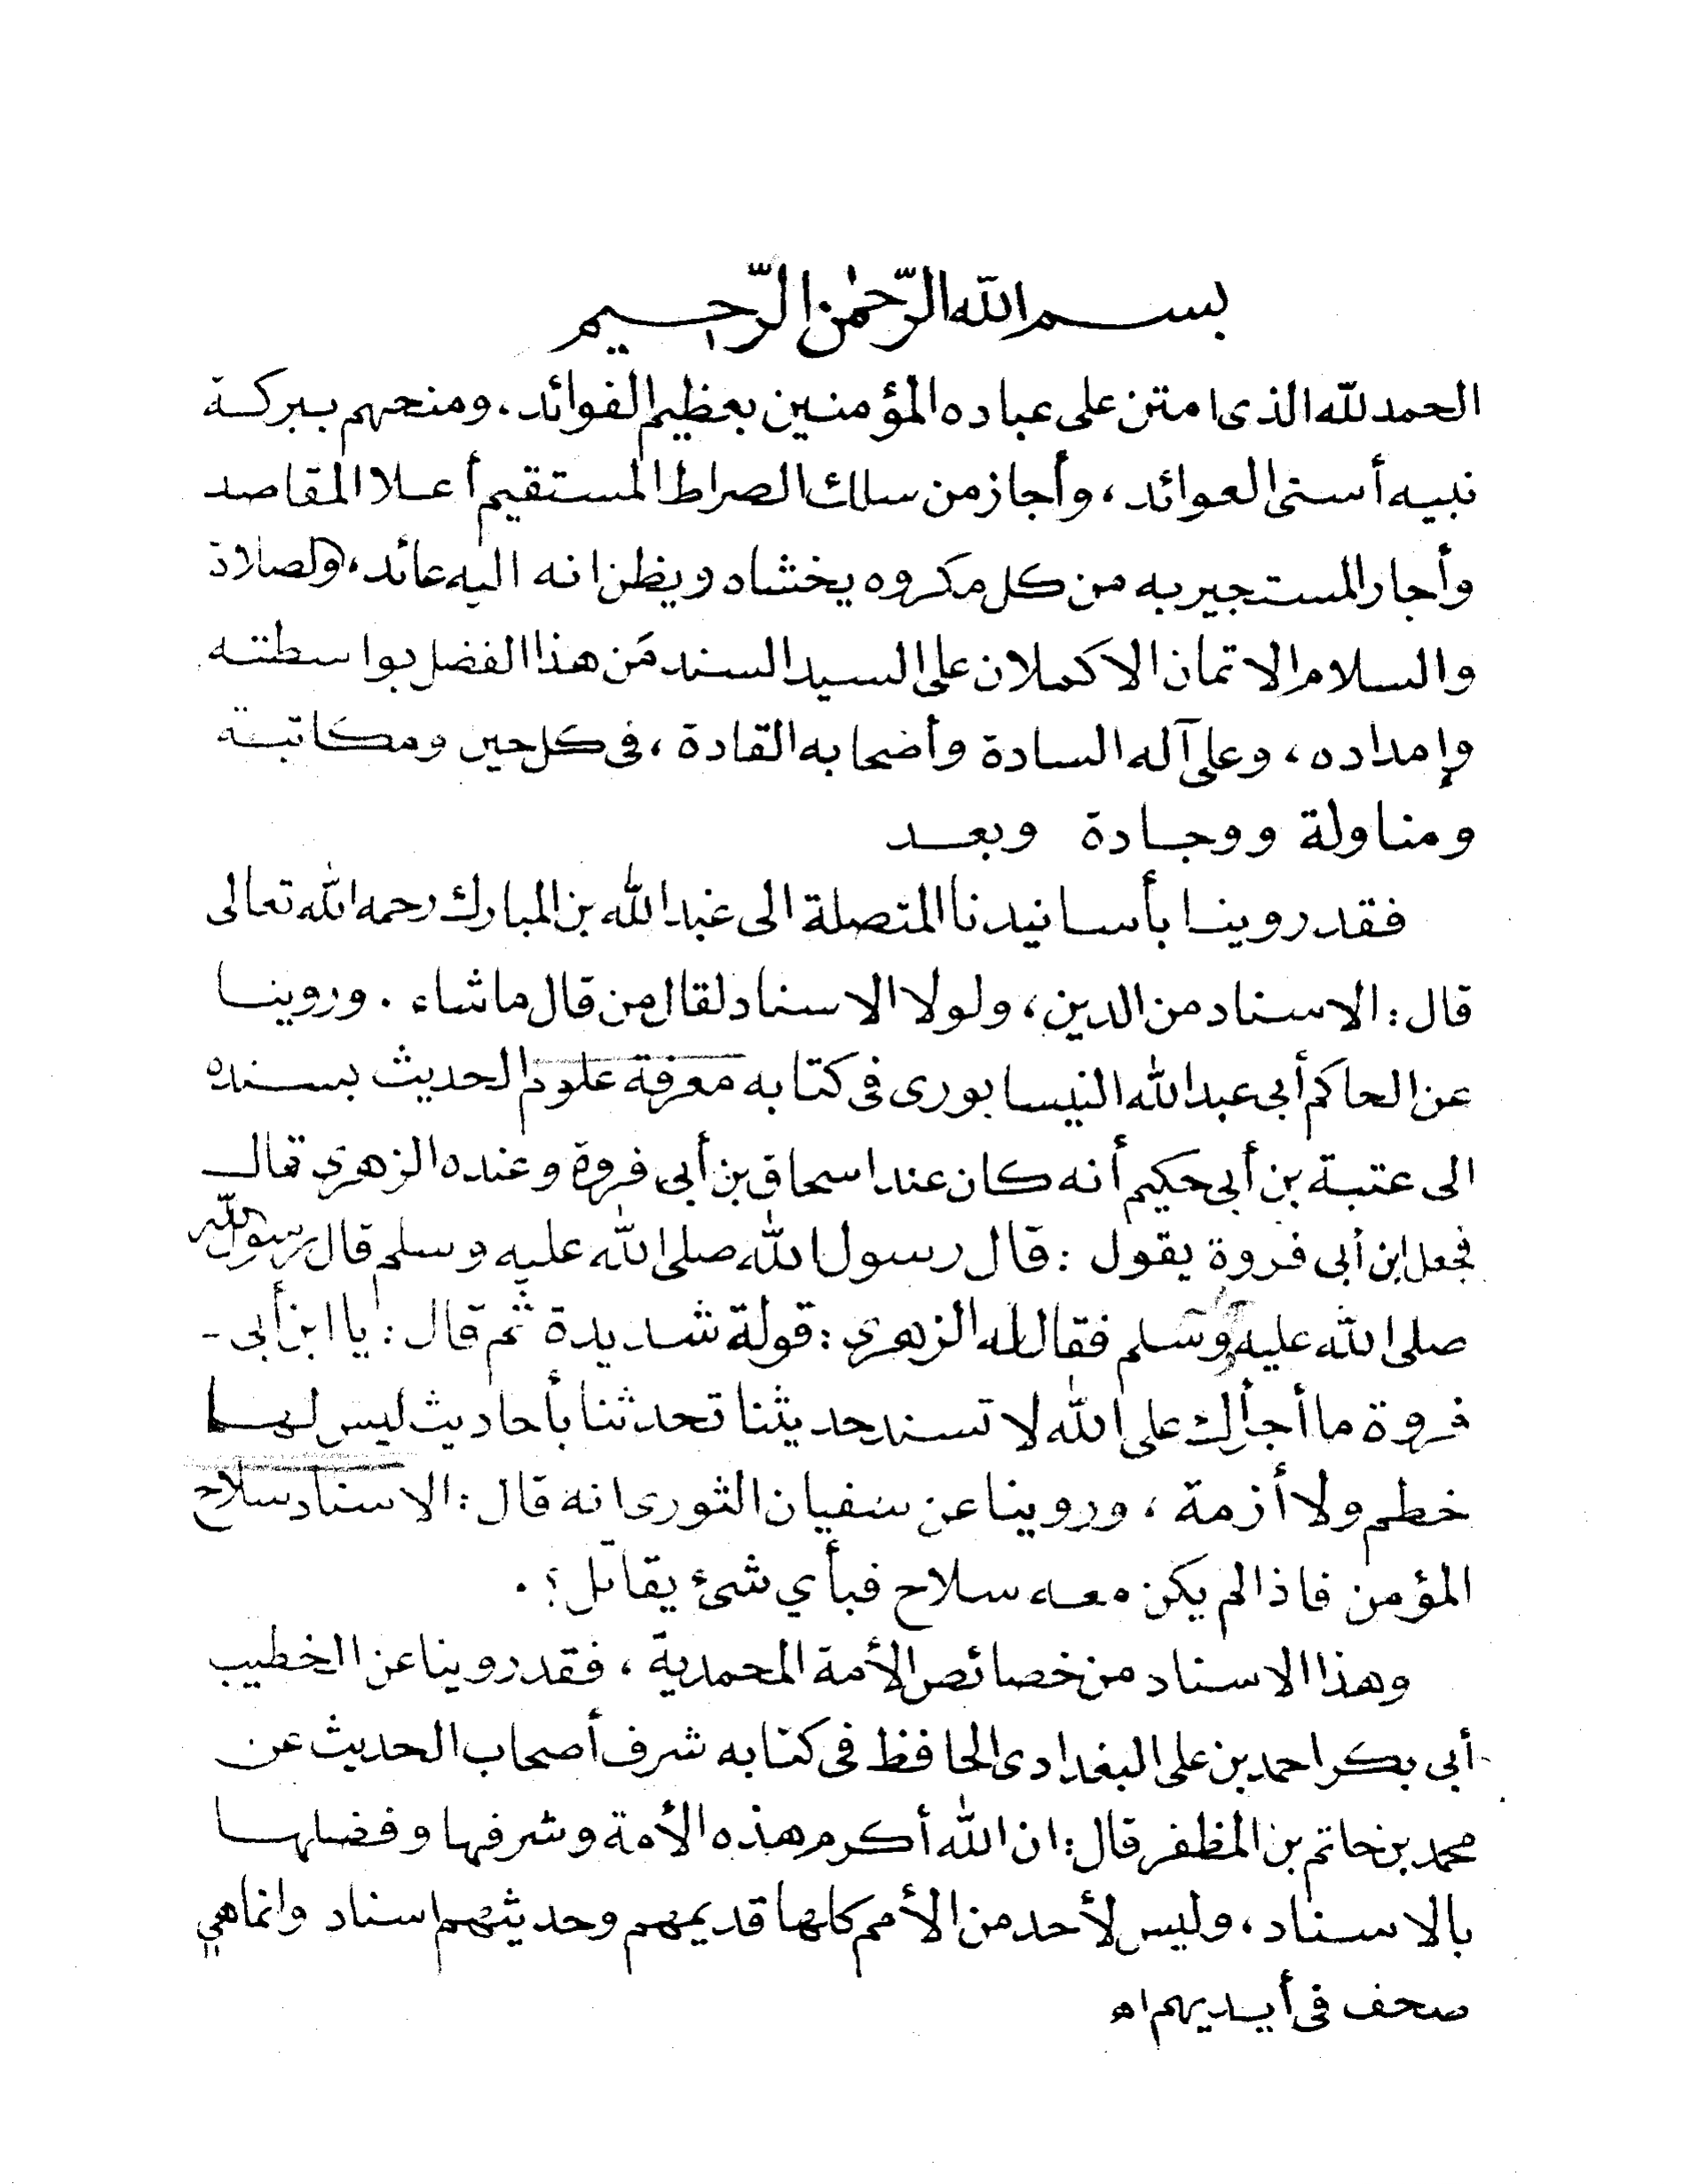 بسم الله الرّحمٰن الرّحيم
الحمد لله الذى امتن على عباده المؤمنين بعظيم الفوائد . ومنحهم ببركة
نبيه أسنى العوائد ، وأجاز من سلك الصراط المستقيم أعلا المقاصد
وأجار المستجير به من كل مكروه يخشاه ويظن انه اليه عائد ، والصلاة
والسلام الاتمان الاكملان على السيد السند مَن هذا الفضل بواسطته
وإمداده ، وعلى آله السادة وأصحابه القادة ، فى كل حين ومكاتبة
ومناولة ووجادة وبعد
فقد روينا بأسانيدنا المتصلة الى عبد الله بن المبارك رحمه الله تعالى
قال : الاسناد من الدين ، ولولا الاسناد لقال من قال ماشاء . وروينا
عن الحاكم أبى عبد الله النيسابورى فى كتابه معرفة علوم الحديث بسنده
الى عتبة بن أبى حكيم أنه كان عند اسحاق بن أبى فروة وعنده الزهرى قال
فجعل ابن أبى فروة يقول : قال رسول الله صلى الله عليه وسلم قال رسول الله
صلى الله عليه وسلم فقال له الزهرى : قولة شديدة ثم قال : يا ابن أبى -
فروة ما أجرأك على الله لا تسند حديثنا تحدثنا بأحاديث ليس لها
خطم ولا أزمة ، وروينا عن سفيان الثورى انه قال : الاسناد سلاح
المؤمن فاذا لم يكن معه سلاح فبأي شئ يقاتل ؟ .
وهذا الاسناد من خصائص الأمة المحمدية ، فقد روينا عن الخطيب
أبى بكر احمد بن على البغدادى الحافظ فى كتابه شرف أصحاب الحديث عن
محمد بن حاتم بن المظفر قال : ان الله أكرم هذه الأمة وشرفها وفضلها
بالاسناد ، وليس لأحد من الأمم كلها قديمهم وحديثهم اسناد وانما هي
صحف فى أيديهم اه